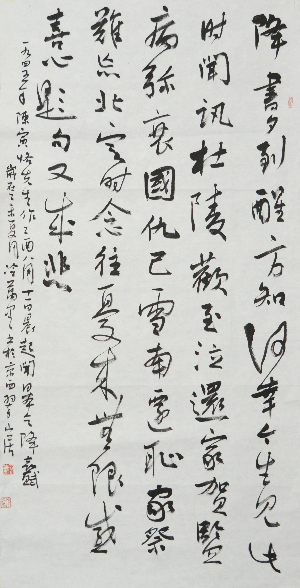 降書夕到醒方知何幸今生見此
時聞訊杜陵歡至泣還家賀監
病弥衰國仇已雪南遷恥家祭
難忘北定時念往憂来無限感
喜心題句又成悲
一九四五年陳寅恪先生作乙酉八月十一日晨起聞日本乞降喜賦
歲在乙未夏月